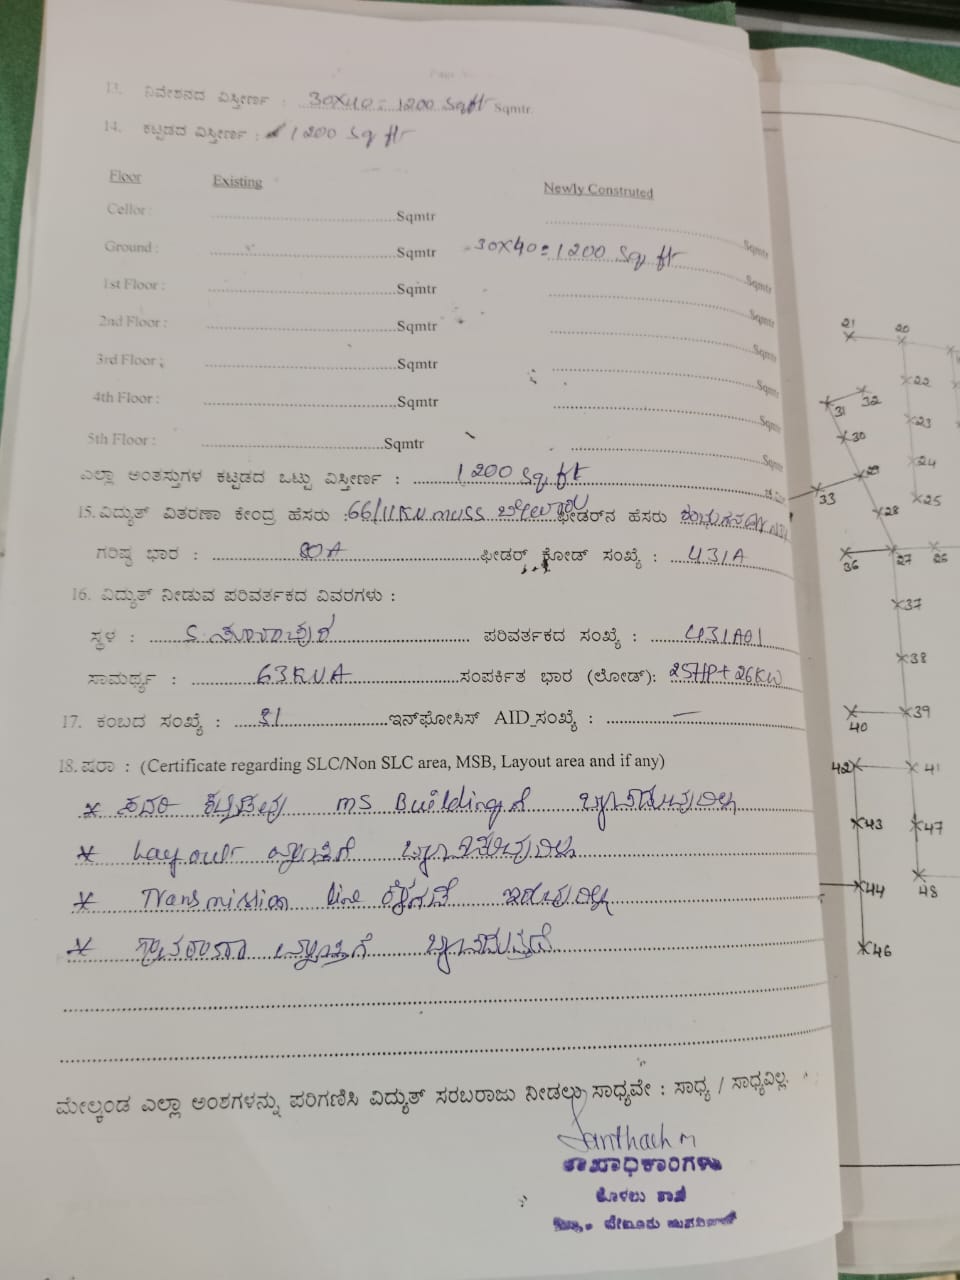 13. ನಿವೇಶನದ ವಿಸ್ತೀರ್ಣ : 30X40=1200 Sqft Sqmtr.
14. ಕಟ್ಟಡದ ವಿಸ್ತೀರ್ಣ : 1200 Sq ft
Floor Existing Newly Constructed
Cellor : Sqmtr Sqmtr
Ground : Sqmtr 30X40=1200 Sq ft Sqmtr
1st Floor : Sqmtr Sqmtr
2nd Floor : Sqmtr Sqmtr
3rd Floor : Sqmtr Sqmtr
4th Floor : Sqmtr Sqmtr
5th Floor : Sqmtr Sqmtr
ಎಲ್ಲಾ ಅಂತಸ್ತುಗಳ ಕಟ್ಟಡದ ಒಟ್ಟು ವಿಸ್ತೀರ್ಣ : 1200 Sq.ft
15. ವಿದ್ಯುತ್ ವಿತರಣಾ ಕೇಂದ್ರ ಹೆಸರು : 66/11KV MUSS ಫೀಡರ್‌ನ ಹೆಸರು
ಗರಿಷ್ಠ ಭಾರ : 80A ಫೀಡರ್ ಕೋಡ್ ಸಂಖ್ಯೆ : 431A
16. ವಿದ್ಯುತ್ ನೀಡುವ ಪರಿವರ್ತಕದ ವಿವರಗಳು :
ಸ್ಥಳ : ಪರಿವರ್ತಕದ ಸಂಖ್ಯೆ : 431A01
ಸಾಮರ್ಥ್ಯ : 63KVA ಸಂಪರ್ಕಿತ ಭಾರ (ಲೋಡ್): 25HP+26KW
17. ಕಂಬದ ಸಂಖ್ಯೆ : 31 ಇನ್‌ಫೋಸಿಸ್ AID ಸಂಖ್ಯೆ : —
18. ಷರಾ : (Certificate regarding SLC/Non SLC area, MSB, Layout area and if any)
* ಸದರಿ ಕಟ್ಟಡವು MS Buildingಗೆ
* Layout ವ್ಯಾಪ್ತಿಗೆ
* Transmission line ಕೆಳಗಡೆ ಇರುವುದಿಲ್ಲ
* ವ್ಯಾಪ್ತಿಗೆ
ಮೇಲ್ಕಂಡ ಎಲ್ಲಾ ಅಂಶಗಳನ್ನು ಪರಿಗಣಿಸಿ ವಿದ್ಯುತ್ ಸರಬರಾಜು ನೀಡಲು ಸಾಧ್ಯವೇ : ಸಾಧ್ಯ / ಸಾಧ್ಯವಿಲ್ಲ.
ಶಾಖಾಧಿಕಾರಿಗಳು
21 20
22
31 32
23
30
24
29
33 25
28
36 27 26
37
38
39
40
42 41
43 47
44 48
46